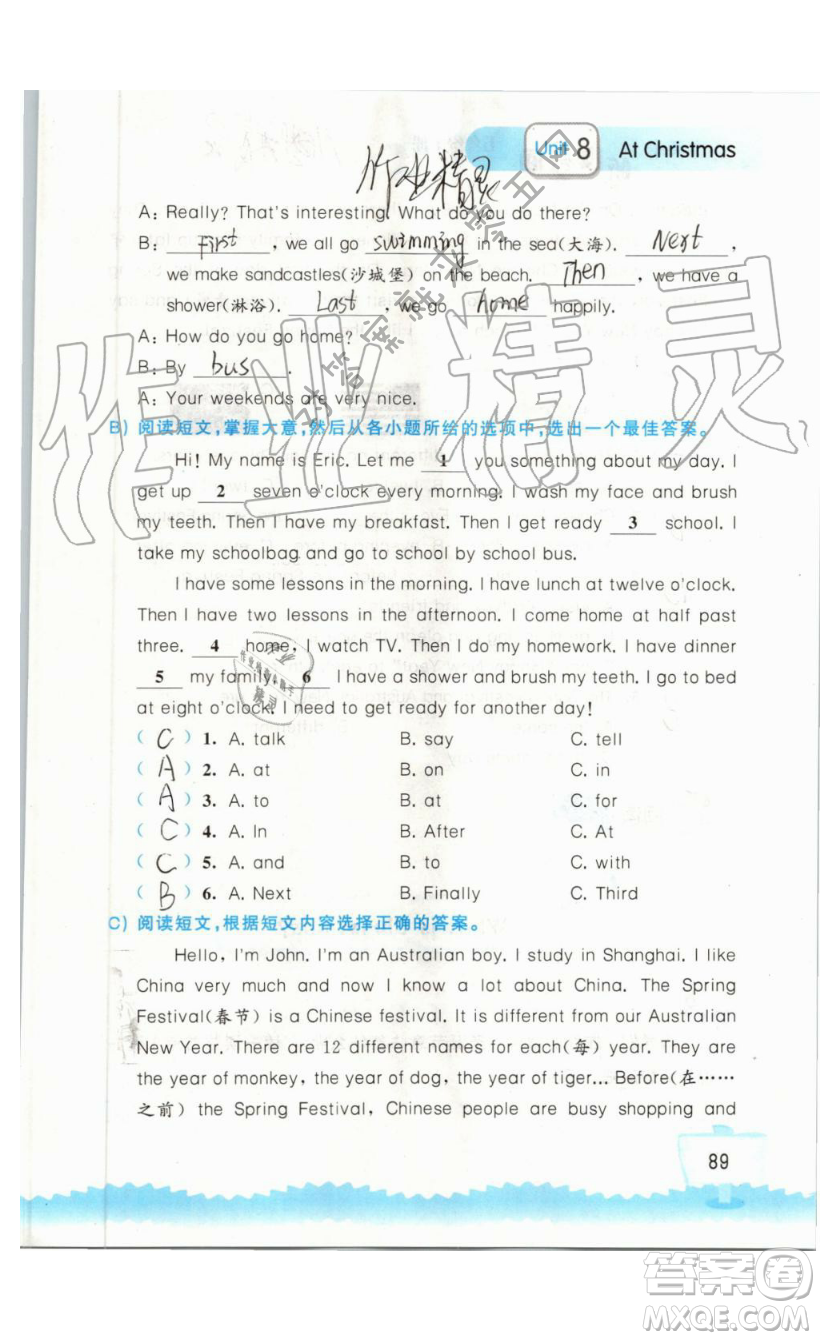 Unit 8 At Christmas
作业精灵
A: Really? That's interesting. What do you do there?
B: First, we all go swimming in the sea(大海). Next,
we make sandcastles(沙城堡) on the beach. Then, we have a
shower(淋浴). Last, we go home happily.
A: How do you go home?
B: By bus.
A: Your weekends are very nice.
B) 阅读短文,掌握大意,然后从各小题所给的选项中,选出一个最佳答案。
Hi! My name is Eric. Let me 1 you something about my day. I
get up 2 seven o'clock every morning. I wash my face and brush
my teeth. Then I have my breakfast. Then I get ready 3 school. I
take my schoolbag and go to school by school bus.
I have some lessons in the morning. I have lunch at twelve o'clock.
Then I have two lessons in the afternoon. I come home at half past
three. 4 home, I watch TV. Then I do my homework. I have dinner
5 my family. 6 I have a shower and brush my teeth. I go to bed
at eight o'clock. I need to get ready for another day!
( C ) 1. A. talk B. say C. tell
( A ) 2. A. at B. on C. in
( A ) 3. A. to B. at C. for
( C ) 4. A. In B. After C. At
( C ) 5. A. and B. to C. with
( B ) 6. A. Next B. Finally C. Third
C) 阅读短文,根据短文内容选择正确的答案。
Hello, I'm John. I'm an Australian boy. I study in Shanghai. I like
China very much and now I know a lot about China. The Spring
Festival(春节) is a Chinese festival. It is different from our Australian
New Year. There are 12 different names for each(每) year. They are
the year of monkey, the year of dog, the year of tiger... Before(在……
之前) the Spring Festival, Chinese people are busy shopping and
89
作业精灵
对答案就求零五网
答案圈
MXQE.COM